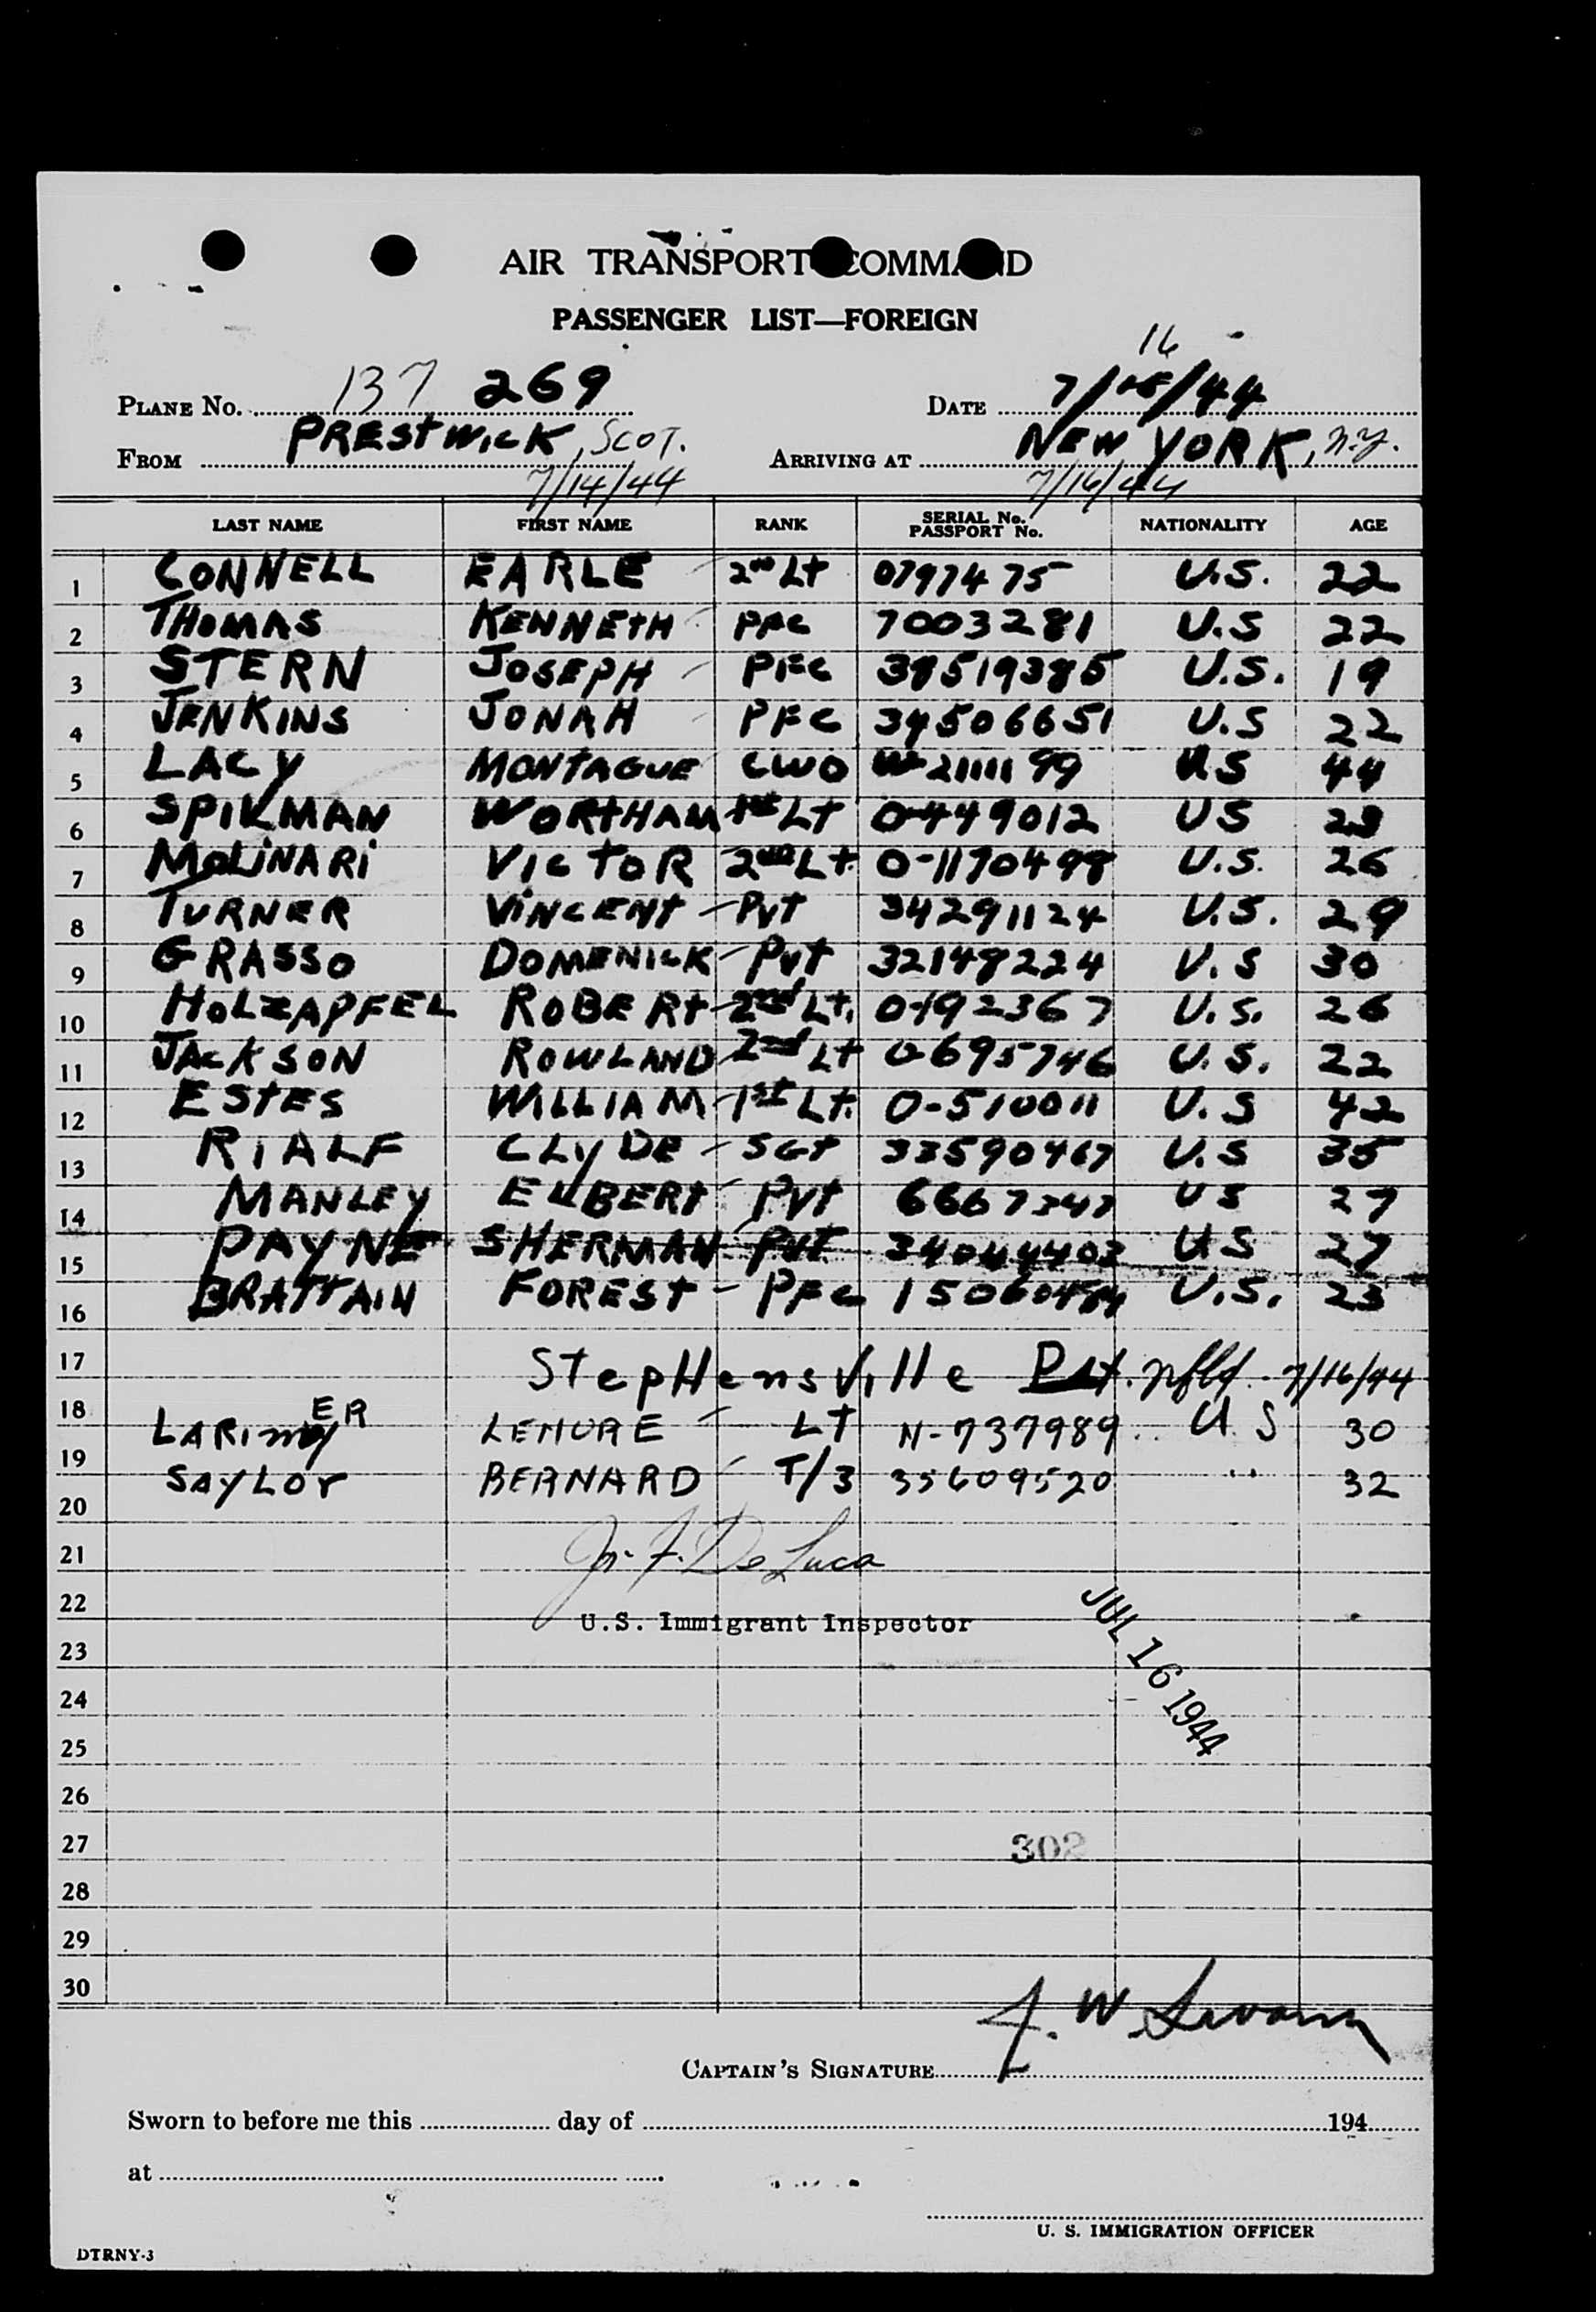 AIR TRANSPORT COMMAND
PASSENGER LIST—FOREIGN
16
PLANE No. 137 269 DATE 7/15/44
FROM PRESTWICK, SCOT. ARRIVING AT NEW YORK, N.Y.
7/14/44 7/16/44
LAST NAME FIRST NAME RANK SERIAL No. PASSPORT No. NATIONALITY AGE
1 CONNELL EARLE 2nd Lt 0797475 U.S. 22
2 THOMAS KENNETH PFC 7003281 U.S 22
3 STERN JOSEPH PFC 39519385 U.S. 19
4 JENKINS JONAH PFC 34506651 U.S 22
5 LACY MONTAGUE CWO W-2111199 US 44
6 SPIKMAN WORTHAM 1st LT 0-449012 US 23
7 MOLINARI VICTOR 2nd Lt. 0-1170498 U.S. 26
8 TURNER VINCENT Pvt 34291124 U.S. 29
9 GRASSO DOMENICK Pvt 32148224 U.S 30
10 HOLZAPFEL ROBERT 2nd Lt. 0492367 U.S. 26
11 JACKSON ROWLAND 2nd Lt 0-695746 U.S. 22
12 ESTES WILLIAM 1st Lt. 0-510011 U.S 42
13 RIALF CLYDE SGT 33590467 U.S 35
14 MANLEY ELBERT Pvt 6667347 US 27
15 PAYNE SHERMAN Pvt 34044403 US 27
16 BRATTAIN FOREST PFC 15060484 U.S. 23
17 StepHensville Nfld. 7/16/44
18 LARIMER LENORE LT N-737989 U.S 30
19 SAYLOR BERNARD T/3 35609520 " 32
20
21 De Luca
22 U.S. Immigrant Inspector
JUL 16 1944
23
24
25
26
27 302
28
29
30
CAPTAIN'S SIGNATURE J. W.
Sworn to before me this day of 194
at
U. S. IMMIGRATION OFFICER
DTRNY-3